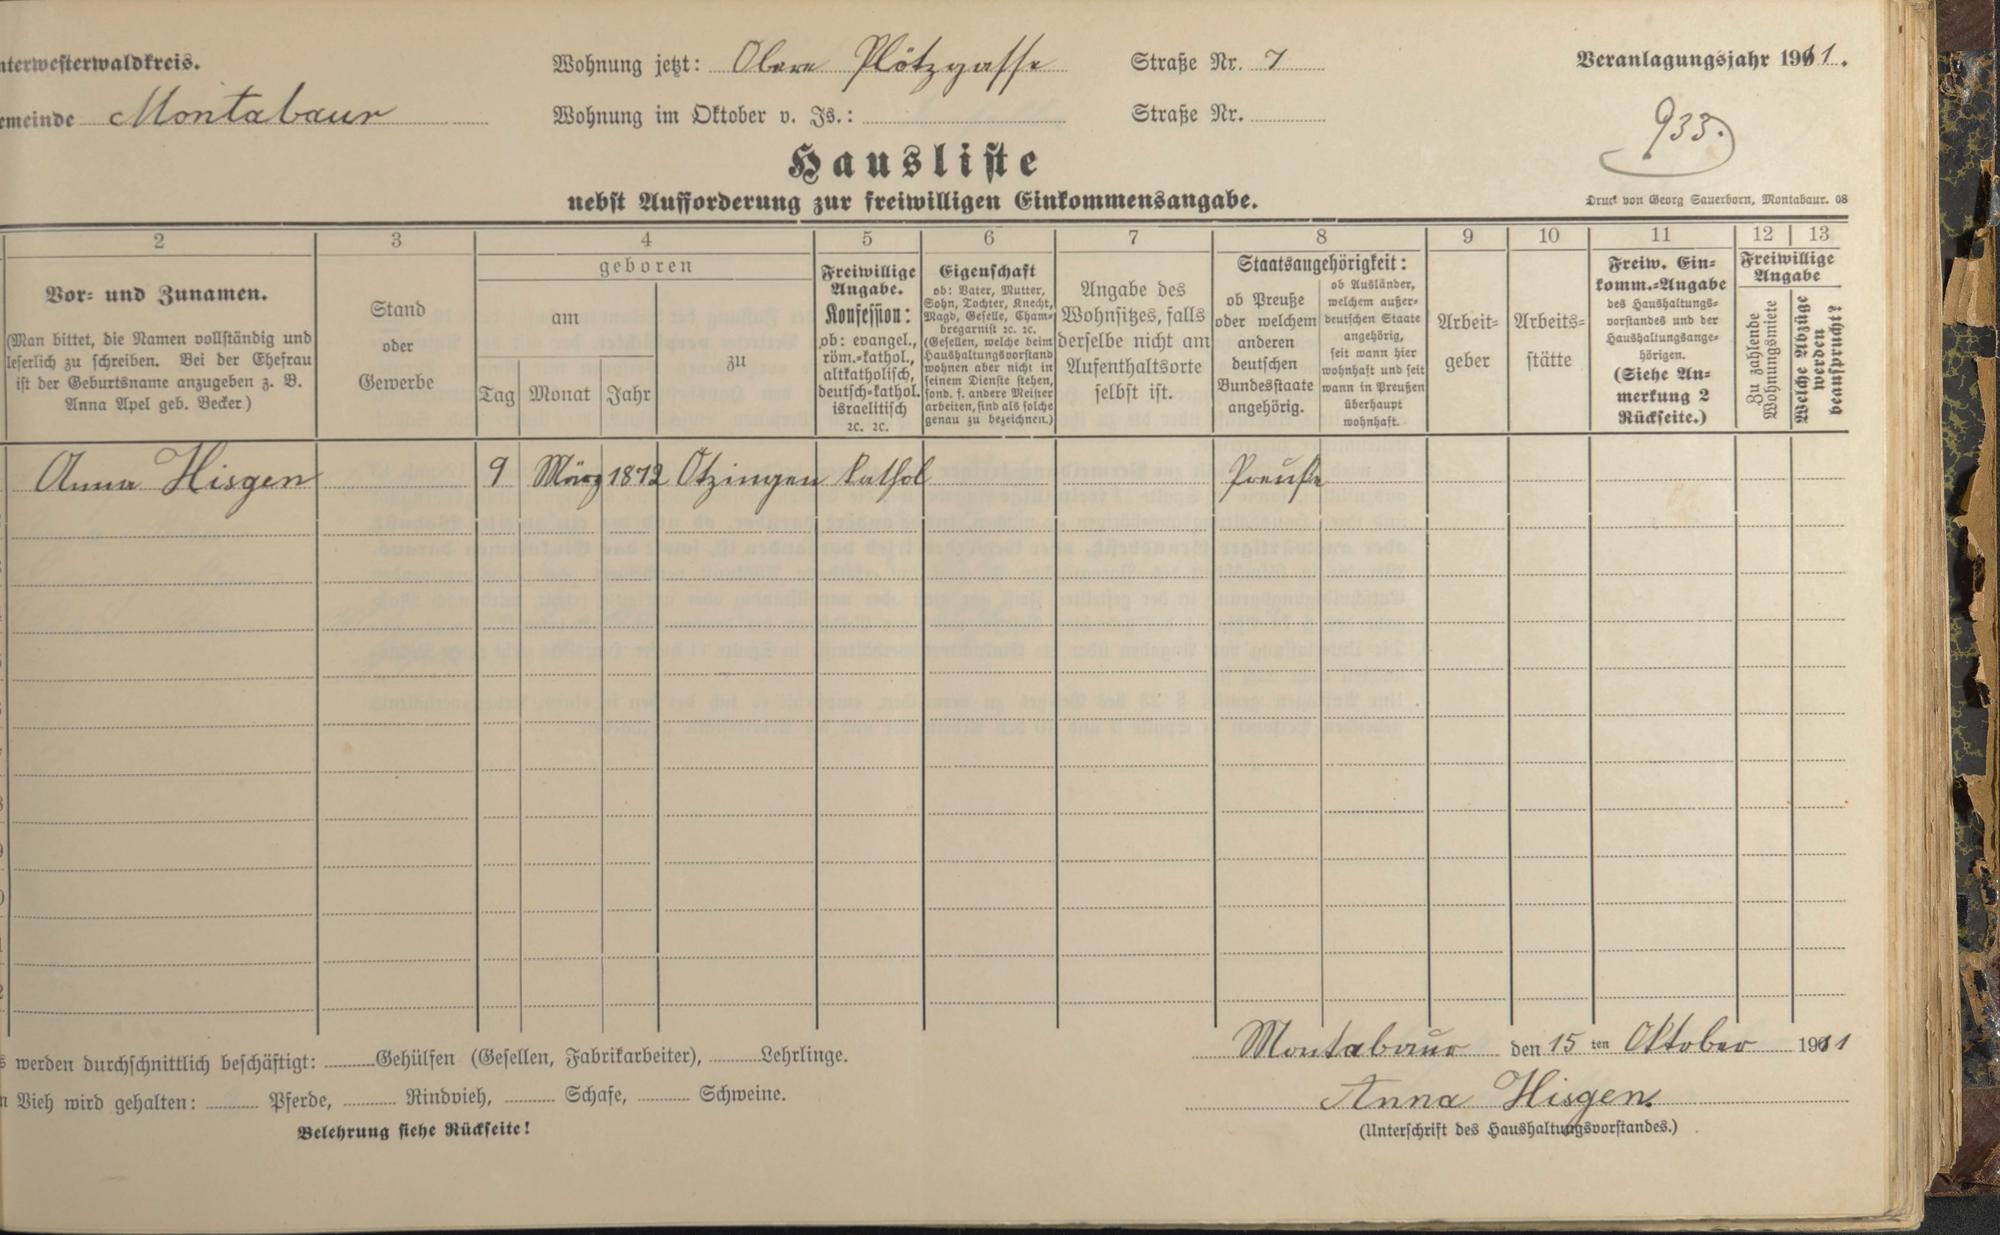 nterwesterwaldkreis.
Wohnung jetzt: Obere Plötzgasse Straße Nr. 7
Veranlagungsjahr 1911.
emeinde Montabaur
Wohnung im Oktober v. Js.: Straße Nr.
933.
Hausliste
nebst Aufforderung zur freiwilligen Einkommensangabe.
Druck von Georg Sauerborn, Montabaur. 08
2 3 4 5 6 7 8 9 10 11 12 13
Vor- und Zunamen.
(Man bittet, die Namen vollständig und
leserlich zu schreiben. Bei der Ehefrau
ist der Geburtsname anzugeben z. B.
Anna Apel geb. Becker)
Stand
oder
Gewerbe
geboren
am
Tag Monat Jahr
zu
Freiwillige
Angabe.
Konfession:
ob: evangel.,
röm.-kathol.,
altkatholisch,
deutsch-kathol.
israelitisch
ꝛc. ꝛc.
Eigenschaft
ob: Vater, Mutter,
Sohn, Tochter, Knecht,
Magd, Geselle, Cham-
bregarnist ꝛc. ꝛc.
(Gesellen, welche beim
Haushaltungsvorstand
wohnen aber nicht in
seinem Dienste stehen,
sond. f. andere Meister
arbeiten, sind als solche
genau zu bezeichnen.)
Angabe des
Wohnsitzes, falls
derselbe nicht am
Aufenthaltsorte
selbst ist.
Staatsangehörigkeit:
ob Preuße
oder welchem
anderen
deutschen
Bundesstaate
angehörig.
ob Ausländer,
welchem außer-
deutschen Staate
angehörig,
seit wann hier
wohnhaft und seit
wann in Preußen
überhaupt
wohnhaft.
Arbeit-
geber
Arbeits-
stätte
Freiw. Ein-
komm.-Angabe
des Haushaltungs-
vorstandes und der
Haushaltungsange-
hörigen.
(Siehe An-
merkung 2
Rückseite.)
Freiwillige
Angabe
Zu zahlende
Wohnungsmiete
Welche Abzüge
werden
beansprucht?
Anna Hisgen 9 März 1872 Ötzingen kathol Preuße
s werden durchschnittlich beschäftigt: Gehülfen (Gesellen, Fabrikarbeiter), Lehrlinge.
Montabaur den 15 ten Oktober 1911
n Vieh wird gehalten: Pferde, Rindvieh, Schafe, Schweine.
Anna Hisgen.
Belehrung siehe Rückseite!
(Unterschrift des Haushaltungsvorstandes.)